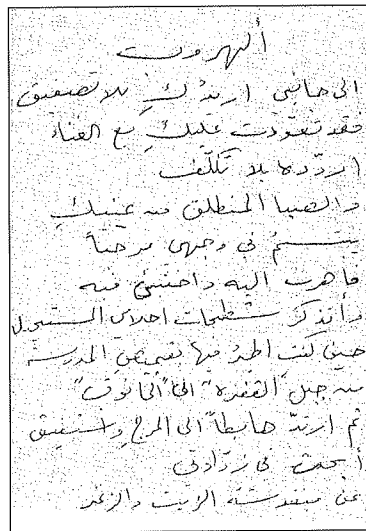 ألهروب
الى جانبي اريدُكِ بلا تصفيق
فقد تعودت عليكِ مع الغناء
اردّده بلا تكلّف
والصبا المنطلق من عينيكِ
يبتسمُ في وجهي مرحباً
فاهرب اليه واختبئ فيه
وأتذكر شطحات احلامي المستحيل
حين كنت اطير فيها بقميص المدرسة
من جبل "القفزه" الى "الخانوق"
ثم ارتدّ هابطاً الى المرج واستفيق
أبحث في زوّادتي
عن منقوشة الزيت والزعتر